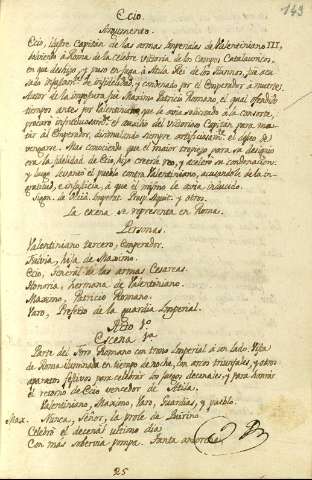 143
Ecio.
Argumento.
Ecio, ilustre Capitan de las armas Imperiales de Valentiniano III,
volviendo à Roma de la celebre victoria de los Campos Catalaunicos,
en que deshizo, y puso en fuga à Atila Rei de los Hunnos, fue acu
sado injustamte de infidelidad, y condenado por el Emperador à muerte.
Autor de la impostura fue Maximo Patricio Romano, el qual ofendido
tiempo antes por Valentiniano que le avia solicitado à la consorte,
procurò infructuosamte el auxilio del victorioso Capitan para ma-
tar al Emperador, disimulando siempre artificiosamte el deseo de
vengarse. Mas conociendo que el maior tropiezo para su designio
era la fidelidad de Ecio, hizo creerle reo, y acelerò su condenacion:
y luego levantò el pueblo contra Valentiniano, acusandole de la in-
gratitud, e injusticia, à que él mismo le avia inducido.
Sigon. de Occid. Imperat. Prosp. Aquit. y otros.
La escena se representa en Roma.
Personas.
Valentiniano tercero, Emperador.
Fulvia, hija de Maximo.
Ecio, General de las armas Cesareas.
Honoria, hermana de Valentiniano.
Maximo, Patricio Romano.
Varo, Prefecto de la guardia Imperial.
Acto 1º
Escena 1ª
Parte del Foro Romano con trono Imperial à un lado. Vista
de Roma iluminada en tiempo de noche, con arcos triunfales, y otros
aparatos festivos para celebrar los juegos decenales, y para honrar
el retorno de Ecio vencedor de Atila.
Valentiniano, Maximo, Varo, Guardias, y pueblo.
Max. Nunca, Señor, la prole de Quirino
Celebrò el decenal ultimo dia
Con mas sobervia pompa. Tanta
25